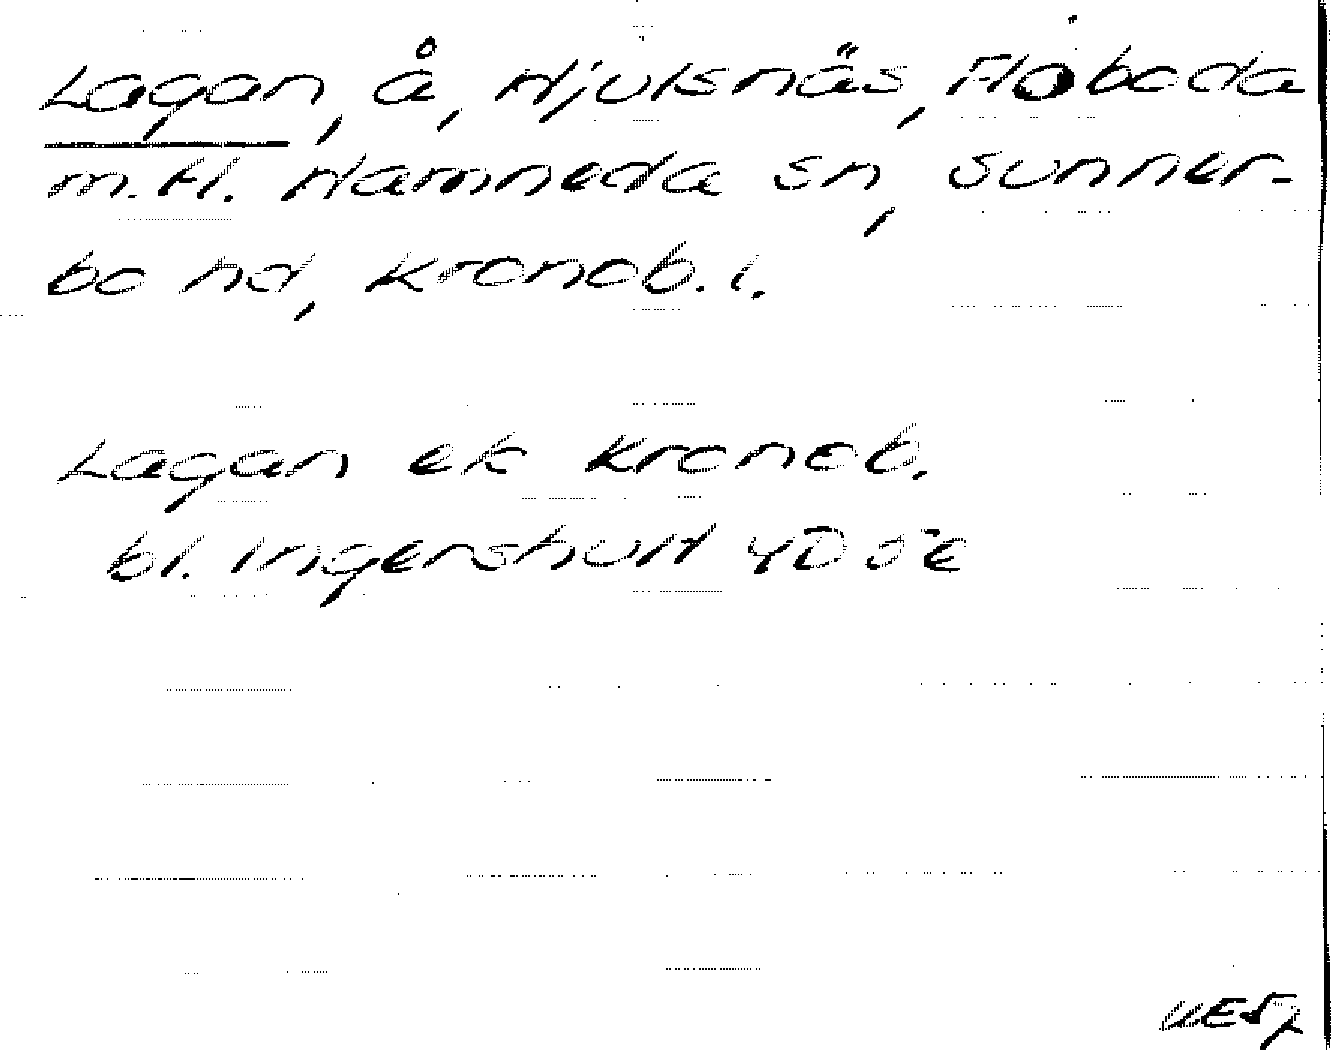 Lagan, å, Hjulsnäs, Flåboda
m.fl. Hamneda sn, Sunner-
bo hd, Kronob. l.
Lagan ek Kronob.
bl. Ingershult 4D 5e